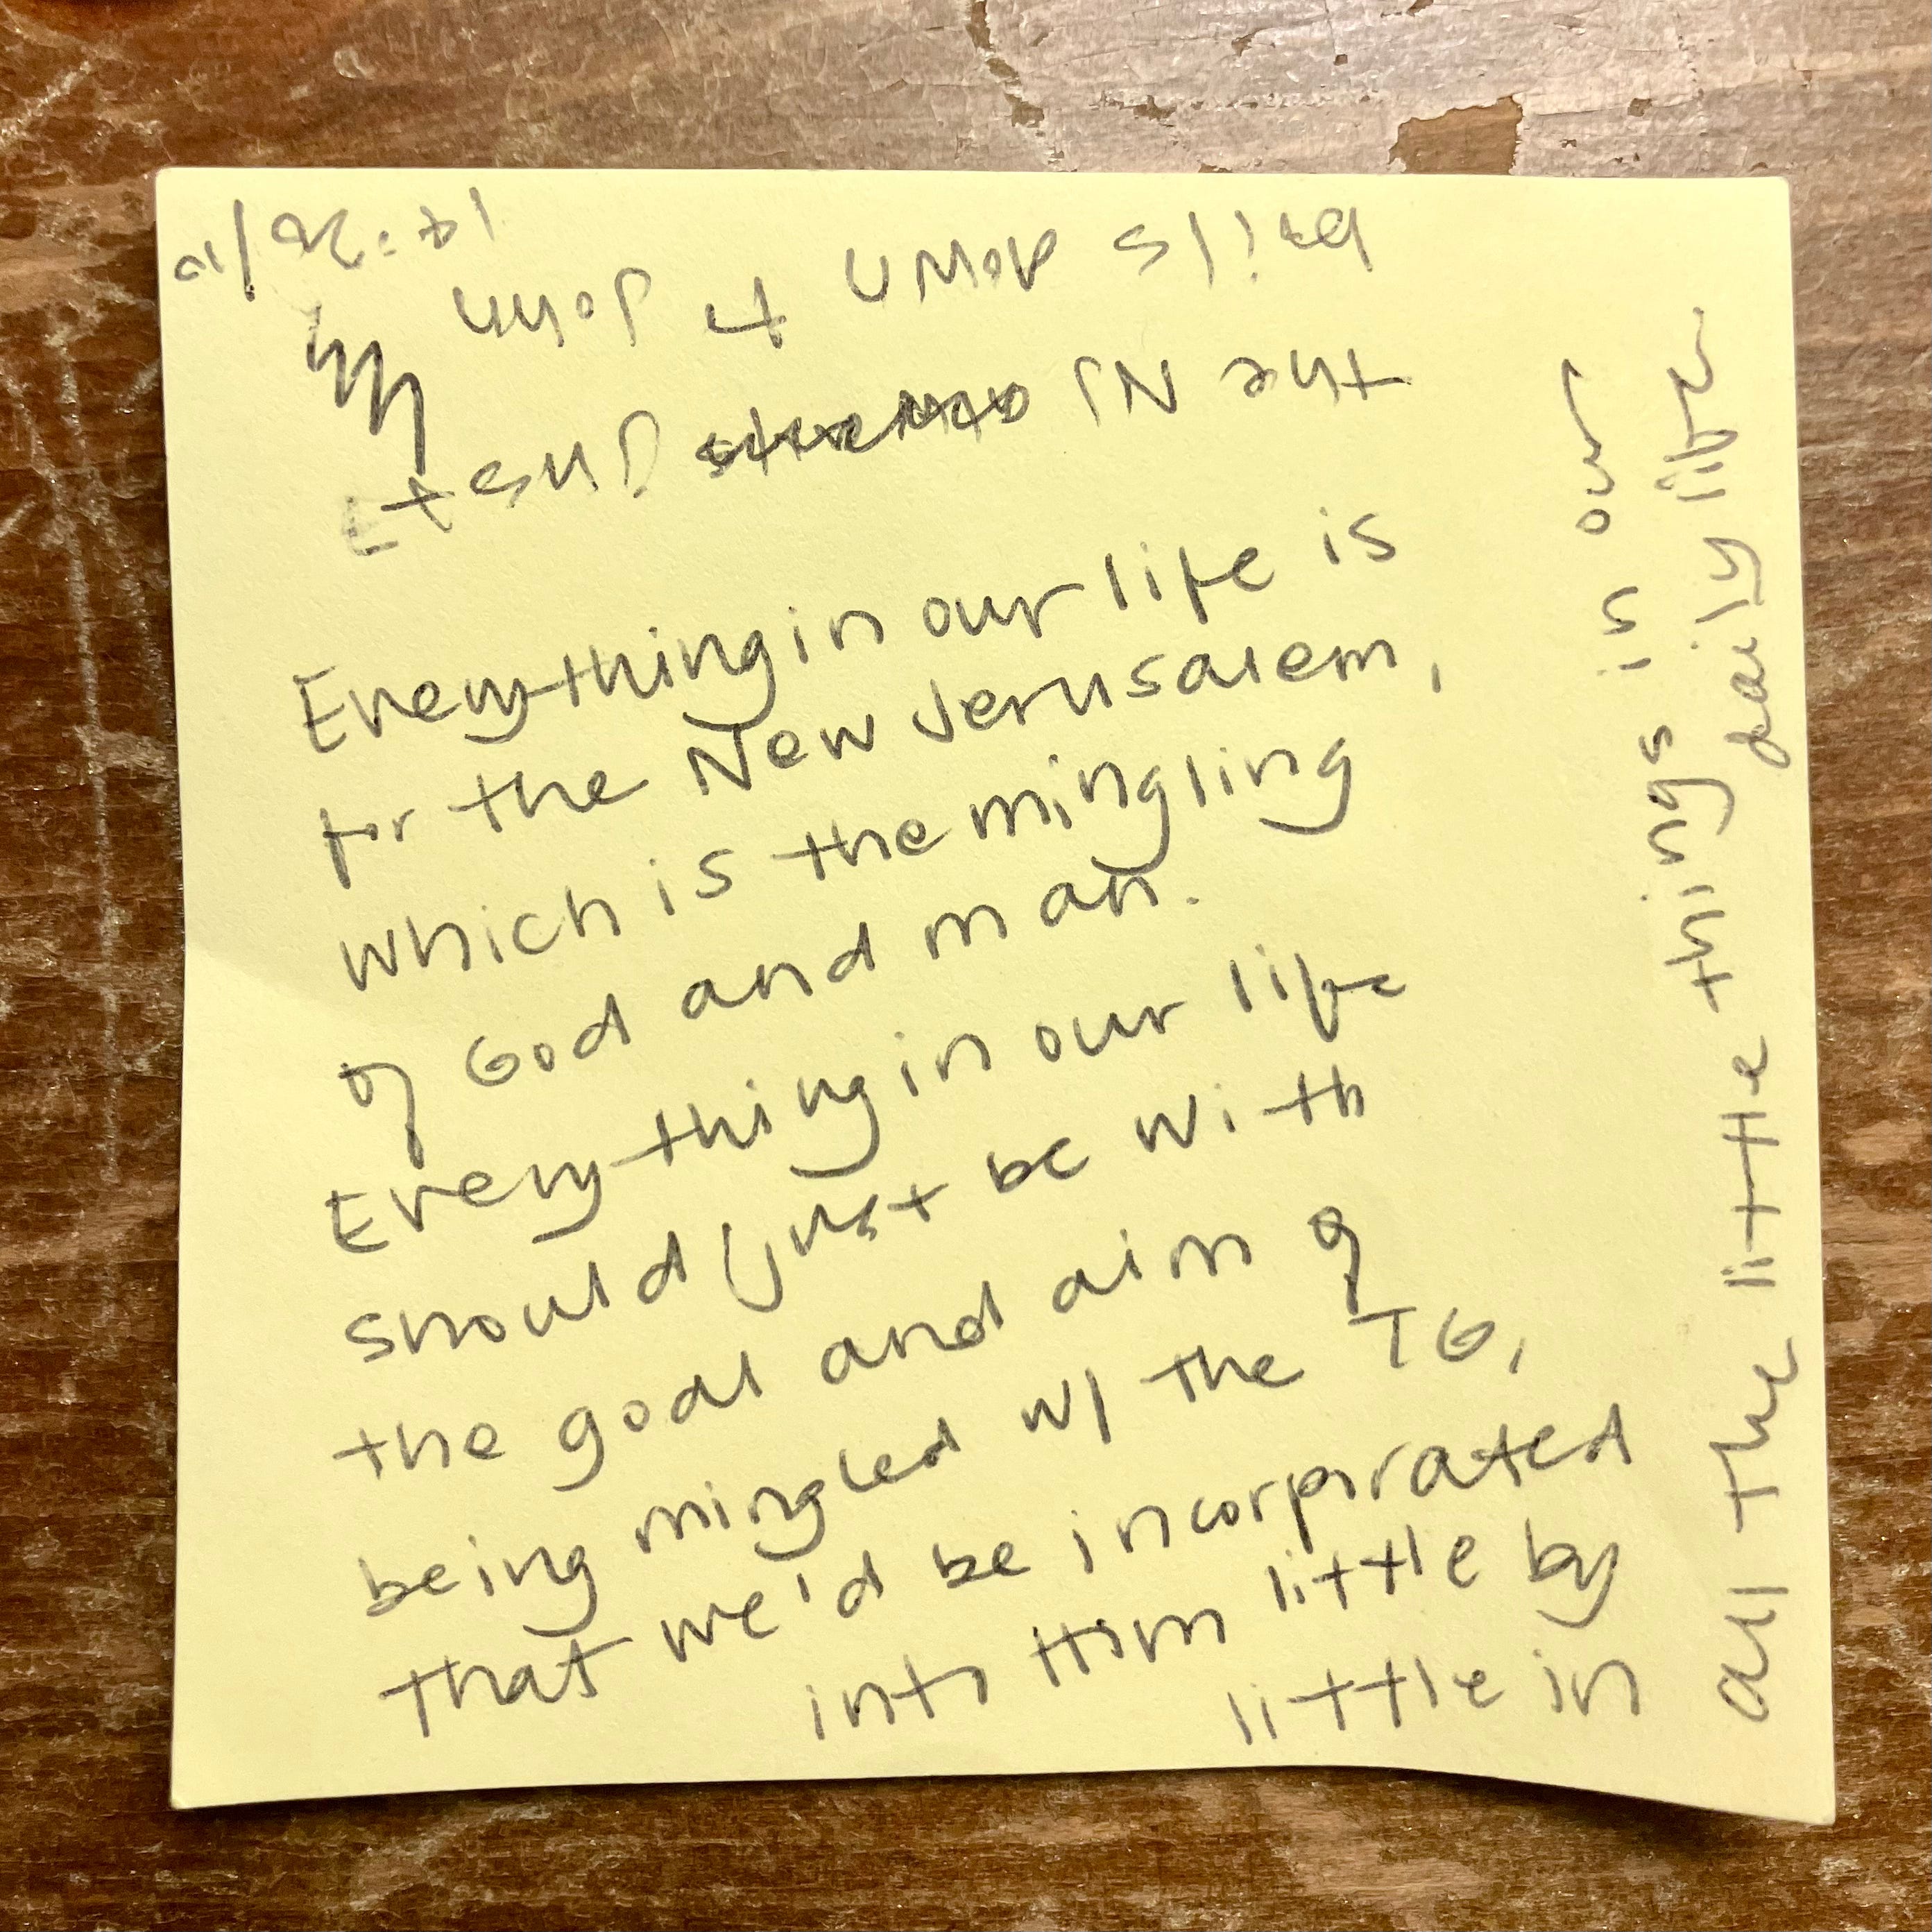 Everything in our life is
for the New Jerusalem,
which is the mingling
of God and man.
Everything in our life
should just be with
the goal and aim of
being mingled w/ the TG,
that we'd be incorporated
into Him little by
little in
all the little things in our
daily life
the NJ just
boils down to John